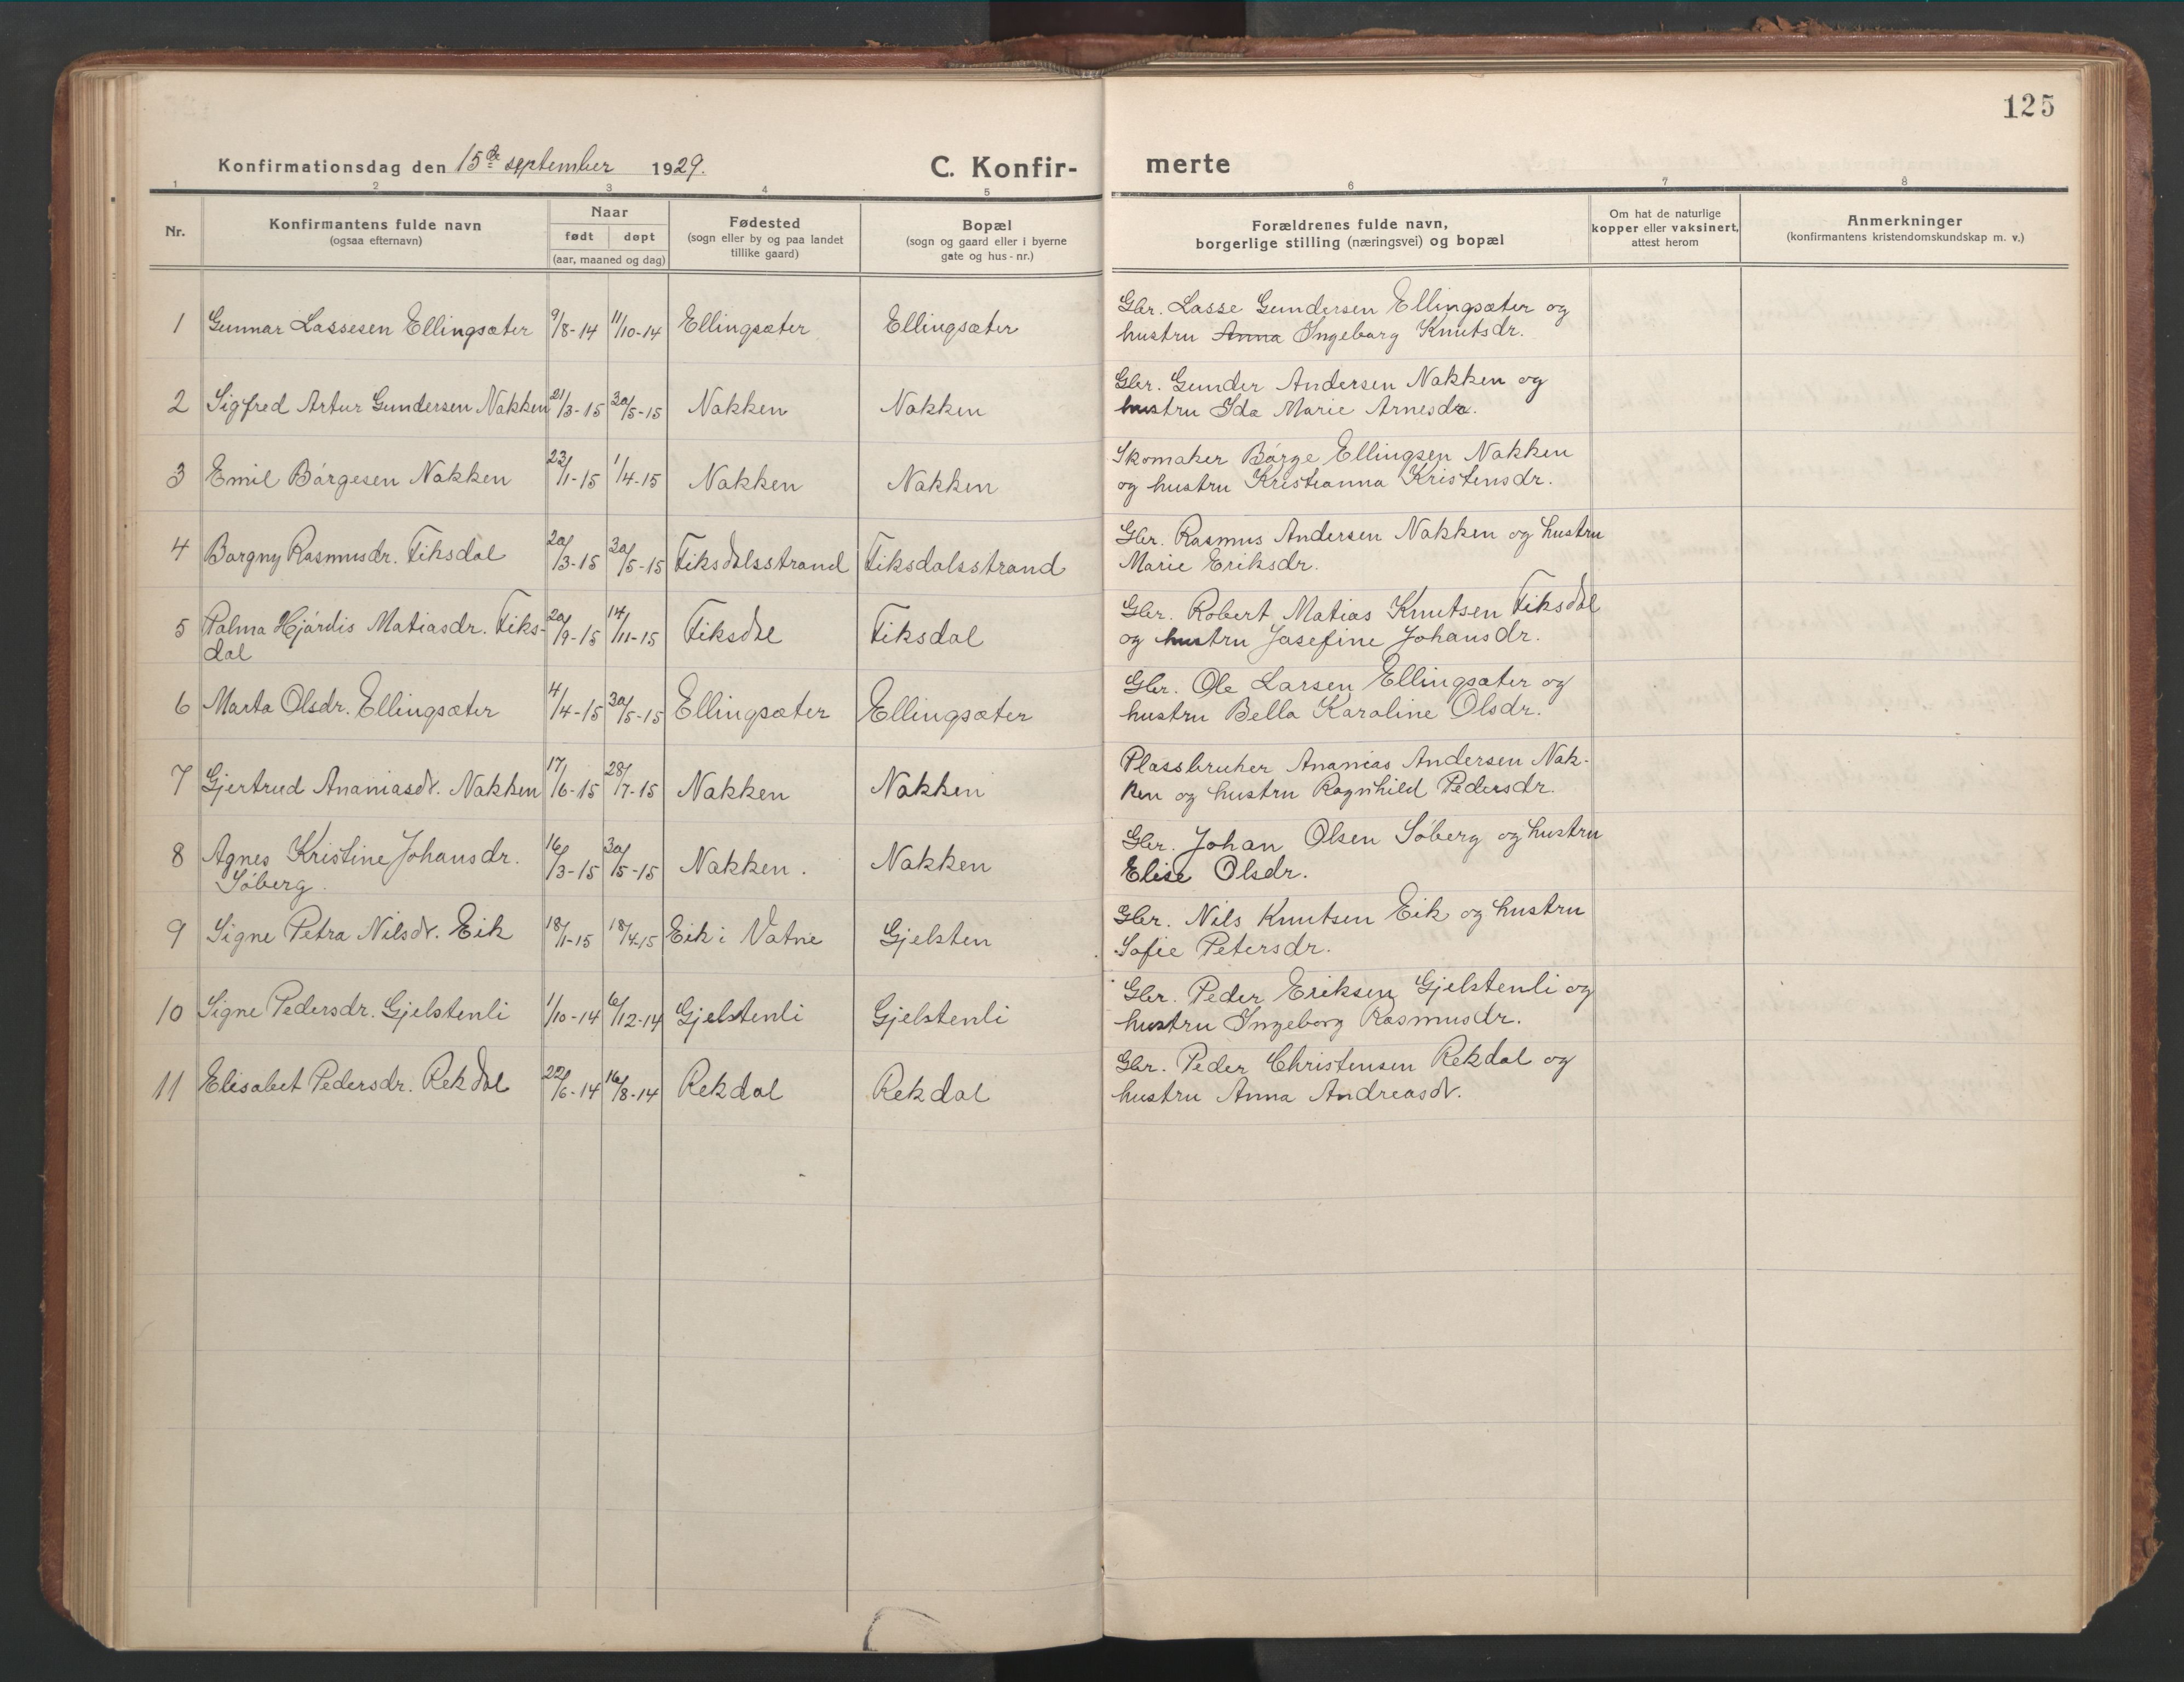 125
Konfirmationsdag den 15de september 1929.
C. Konfir-
merte
1 2 3 4 5 6 7 8
Nr.
Konfirmantens fulde navn
(ogsaa efternavn)
Naar
født døpt
(aar, maaned og dag)
Fødested
(sogn eller by og paa landet
tillike gaard)
Bopæl
(sogn og gaard eller i byerne
gate og hus-nr.)
Forældrenes fulde navn,
borgerlige stilling (næringsvei) og bopæl
Om hat de naturlige
kopper eller vaksinert,
attest herom
Anmerkninger
(konfirmantens kristendomskundskap m. v.)
1 Gunnar Lassesen Ellingsæter 9/8-14 11/10-14 Ellingsæter Ellingsæter Gbr. Lasse Gundersen Ellingsæter og
hustru Anna Ingeborg Knutsdr.
2 Sigfred Artur Gundersen Nakken 21/3-15 30/5-15 Nakken Nakken Gbr. Gunder Andersen Nakken og
hustru Ida Marie Arnesdr.
3 Emil Børgesen Nakken 23/1-15 1/4-15 Nakken Nakken Skomaker Børge Ellingsen Nakken
og hustru Kristianna Kristensdr.
4 Borgny Rasmusdr. Tiksdal 20/3-15 30/5-15 Tiksdalsstrand Tiksdalsstrand Gbr. Rasmus Andersen Nakken og hustru
Marie Eriksdr.
5 Palma Hjørdis Matiasdr. Tiks- 20/9-15 14/11-15 Tiksdal Tiksdal Gbr. Robert Matias Knutsen Tiksdal
dal og hustru Josefine Johansdr.
6 Marta Olsdr. Ellingsæter 4/4-15 30/5-15 Ellingsæter Ellingsæter Gbr. Ole Larsen Ellingsæter og
hustru Bella Karoline Olsdr.
7 Gjertrud Ananiasdr. Nakken 17/6-15 28/7-15 Nakken Nakken Plassbruker Ananias Andersen Nak-
ken og hustru Ragnhild Pedersdr.
8 Agnes Kristine Johansdr. 16/3-15 30/5-15 Nakken. Nakken Gbr. Johan Olsen Søberg og hustru
Søberg. Elise Olsdr.
9 Signe Petra Nilsdr. Eik 18/1-15 18/4-15 Eik i Vatne Gjelsten Gbr. Nils Knutsen Eik og hustru
Sofie Petersdr.
10 Signe Pedersdr. Gjelstenli 1/10-14 6/12-14 Gjelstenli Gjelstenli Gbr. Peder Eriksen Gjelstenli og
hustru Ingeborg Rasmusdr.
11 Elisabet Pedersdr. Rekdal 22/6-14 16/8-14 Rekdal Rekdal Gbr. Peder Christensen Rekdal og
hustru Anna Andreasdr.